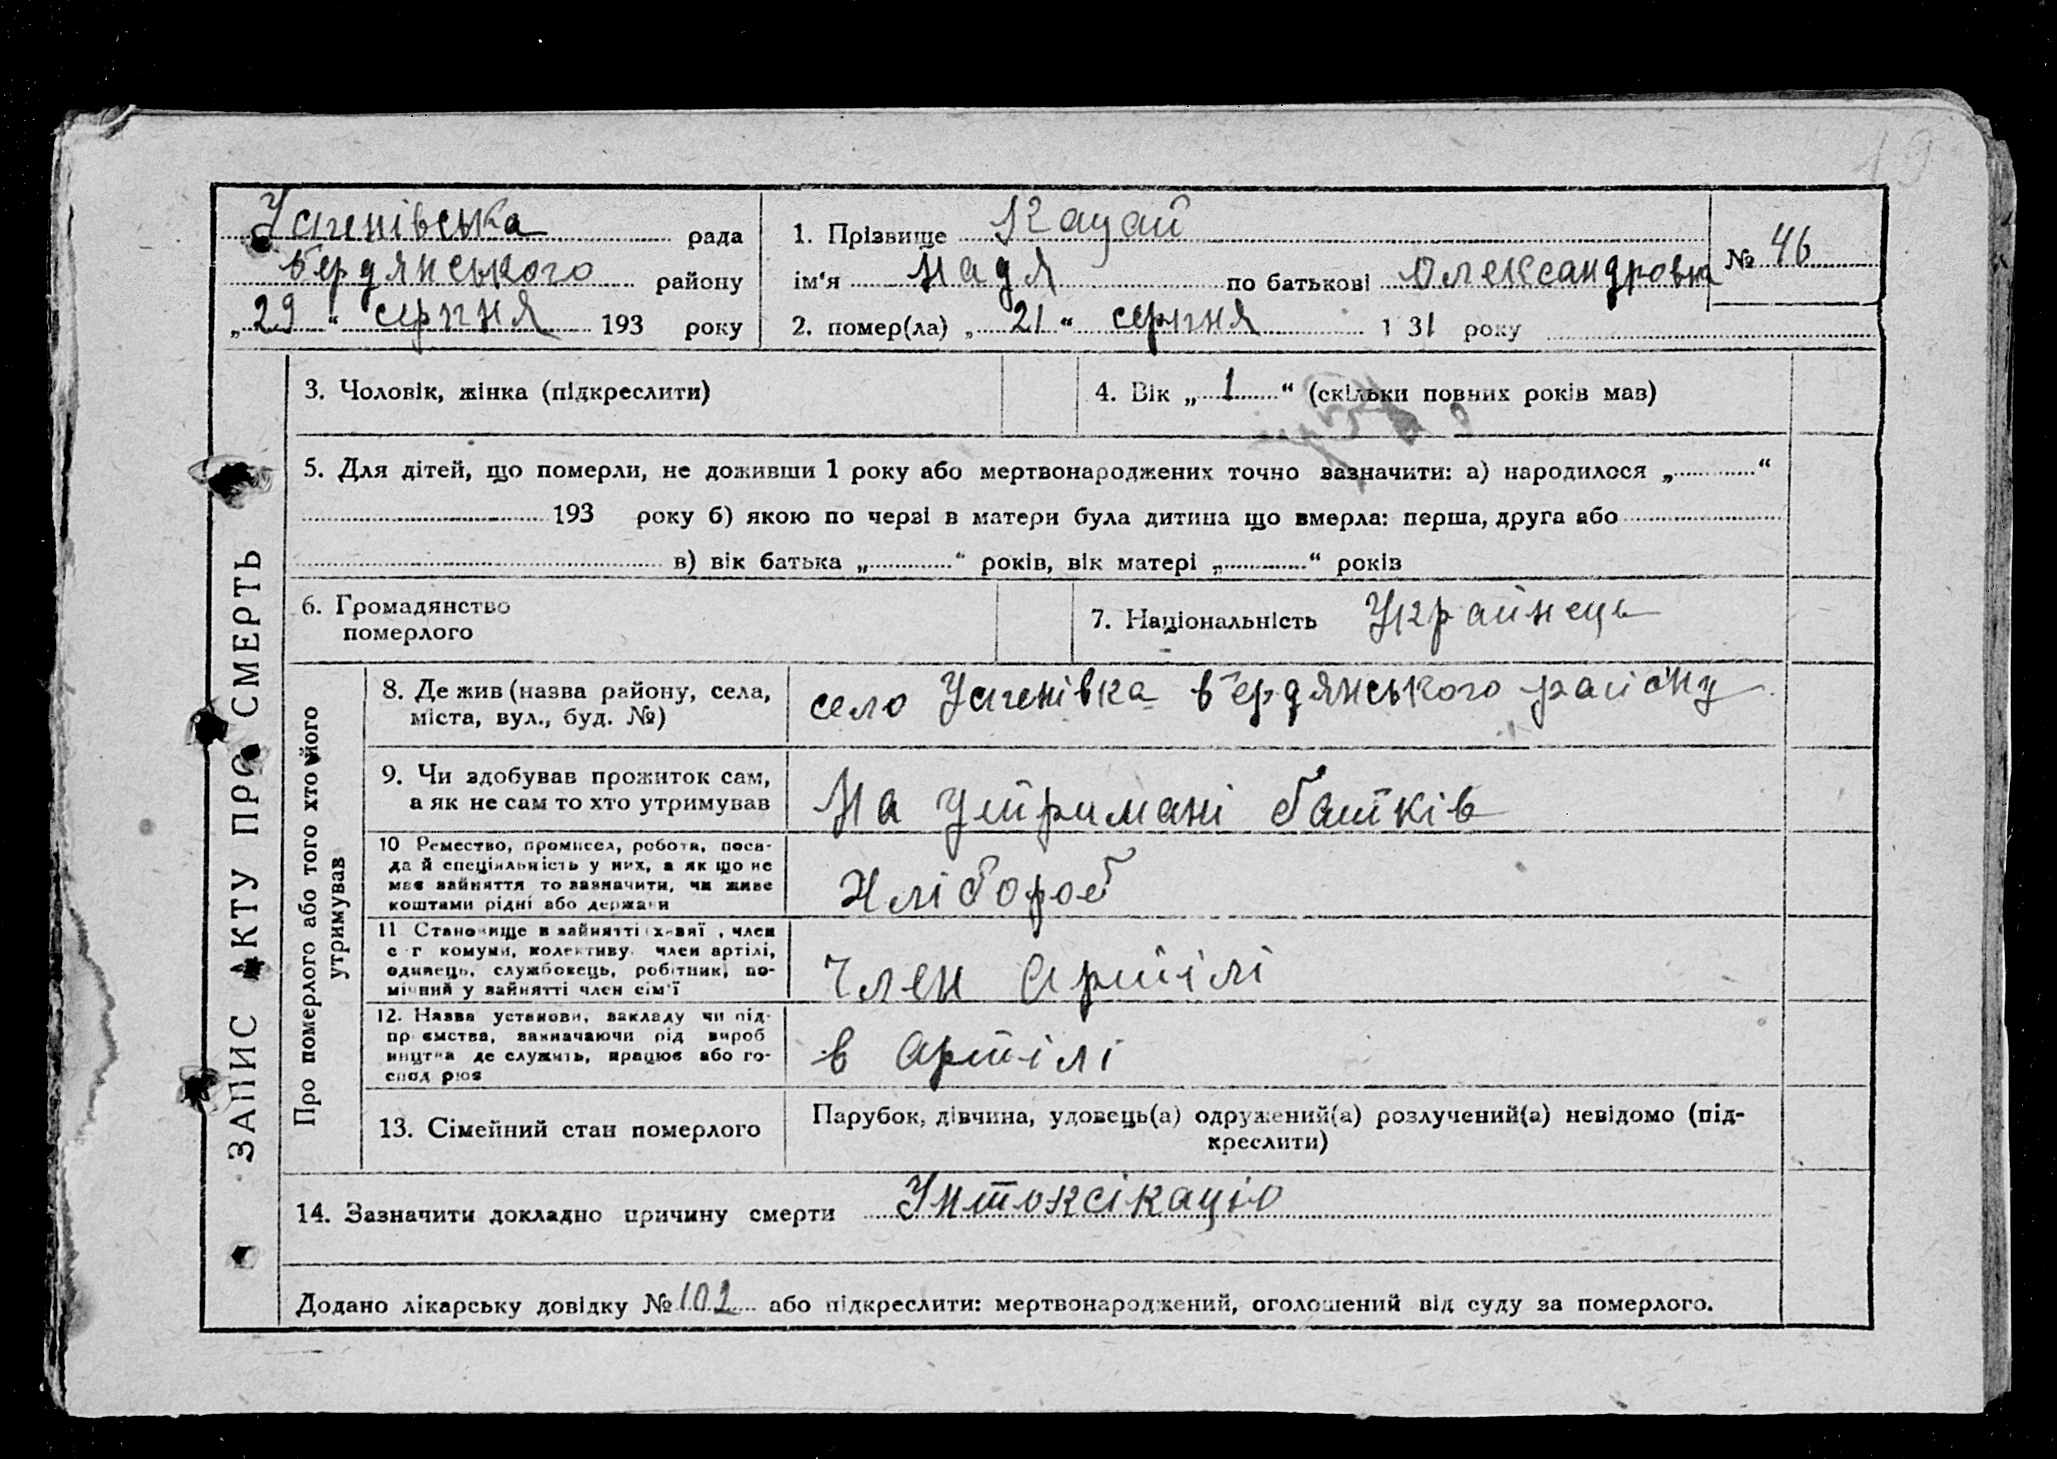 Успенівська рада
Бердянського району
„29“ серпня 193 року
1. Прізвище Кацай
ім‘я Надя по батькові Олександровна
№ 46
2. помер(ла) „21“ серпня 1 31 року
ЗАПИС АКТУ ПРО СМЕРТЬ
3. Чоловік, жінка (підкреслити)
4. Вік „1“ (скільки повних років мав)
5. Для дітей, що померли, не доживши 1 року або мертвонароджених точно зазначити: а) народилося „ “
193 року б) якою по черзі в матери була дитина що вмерла: перша, друга або
в) вік батька „ “ років, вік матері „ “ років
6. Громадянство
померлого
7. Національність Украйнець
Про померлого або того хто його
утримував
8. Де жив (назва району, села,
міста, вул., буд. №)
село Успенівка Бердянського району
9. Чи здобував прожиток сам,
а як не сам то хто утримував
На утримані батків
10 Ремество, промисел, робота, поса-
да й спеціяльність у них, а як що не
має зайняття то зазначити, чи живе
коштами рідні або держави
Хлібороб
11 Становище в зайнятті хазяї , член
с г комуни, колективу, член артілі,
одинець, службовець, робітник, по-
мічний у зайнятті член сім'ї
Член артілі
12. Назва установи, закладу чи під-
пр ємства, зазначаючи рід вироб
ництва де служить, працює або го-
спод рює
в артілі
13. Сімейний стан померлого
Парубок, дівчина, удовець(а) одружений(а) розлучений(а) невідомо (під-
креслити)
14. Зазначити докладно причину смерти Интоксікацію
Додано лікарську довідку №102 або підкреслити: мертвонароджений, оголошений від суду за померлого.